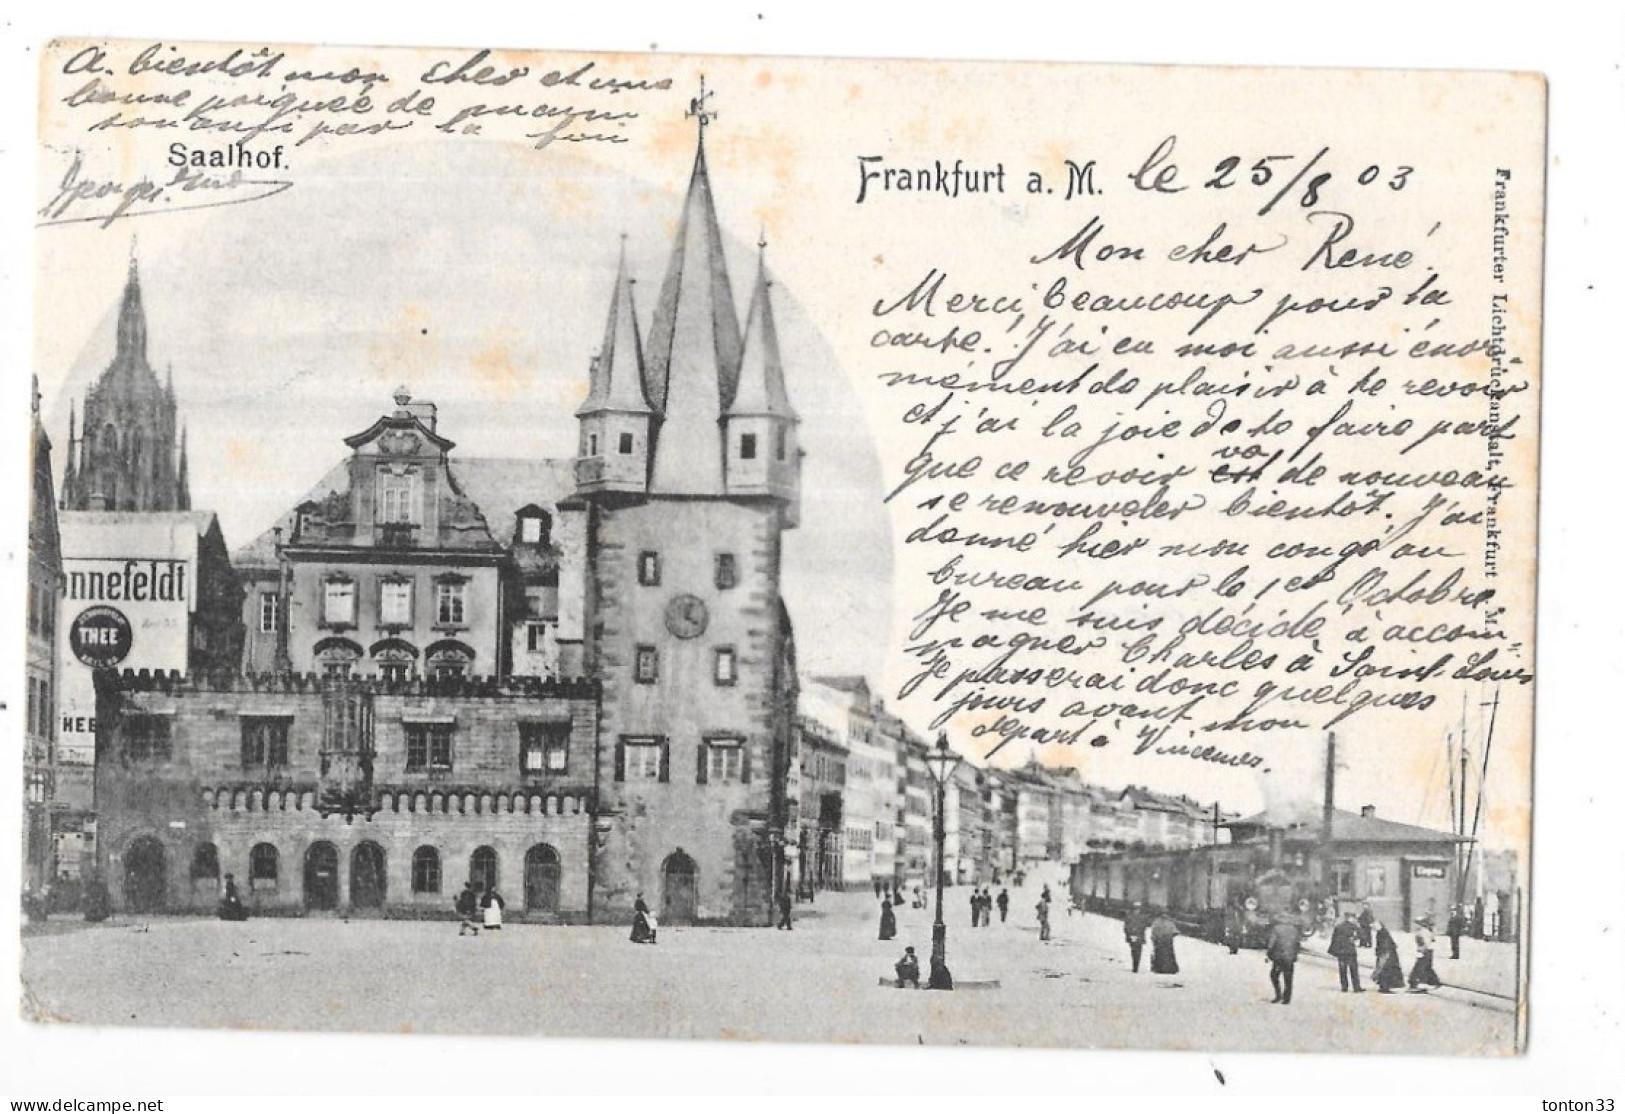 A bientôt mon cher et une
bonne poignée de main
par la
Saalhof.
Georges
Frankfurt a. M. le 25/8 03
Mon cher René.
Merci beaucoup pour ta
carte. J'ai eu moi aussi énor-
mément de plaisir à te revoir
et j'ai la joie de te faire part
que ce revoir va de nouveau
se renouveler bientôt. J'ai
donné hier mon congé au
bureau pour le 1er Octobre.
Je me suis décidé à accom-
pagner Charles à Saint-Louis
Je passerai donc quelques
jours avant mon
départ à Vincennes.
Frankfurter Lichtdruckanstalt, Frankfurt M.
onnefeldt
THEE
HEE
tonton33